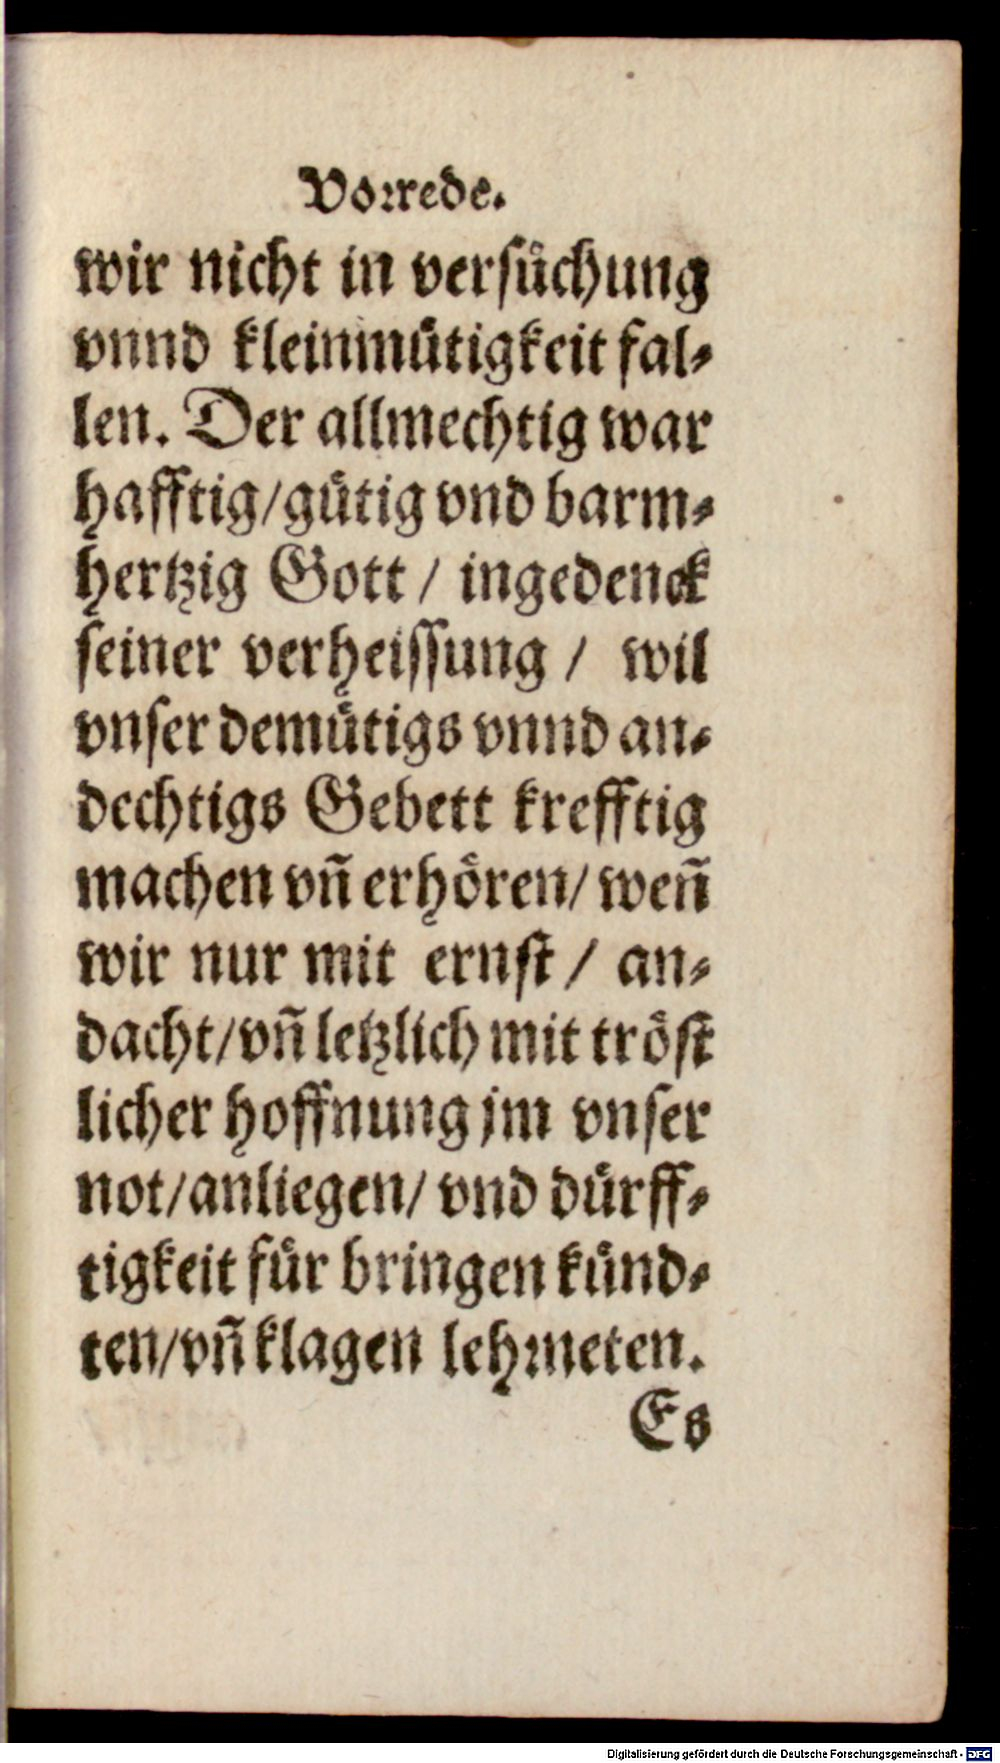 Vorrede.
wir nicht in versuͤchung
vnnd kleinmuͤtigkeit fal⸗
len. Der allmechtig war
hafftig/guͤtig vnd barm⸗
hertzig Gott / ingedenck
seiner verheissung / wil
vnser demuͤtigs vnnd an⸗
dechtigs Gebett krefftig
machen vñ erhoͤren/ weñ
wir nur mit ernst / an⸗
dacht/vñ letzlich mit troͤst
licher hoffnung jm vnser
not/anliegen/ vnd duͤrff⸗
tigkeit fuͤr bringen kuͤnd⸗
ten/vñ klagen lehrneten.
Es
Digitalisierung gefördert durch die Deutsche Forschungsgemeinschaft - DFG